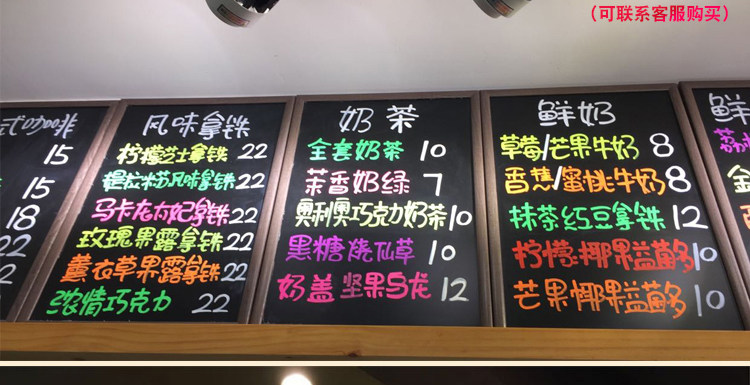 （可联系客服购买）
式咖啡
15
15
18
22
22
风味拿铁
柠檬芝士拿铁 22
提拉米苏风味拿铁 22
马卡龙有妃拿铁 22
玫瑰果露拿铁 22
薰衣草果露拿铁 22
浓情巧克力 22
奶茶
全套奶茶 10
茉香奶绿 7
奥利奥巧克力奶茶 10
黑糖烧仙草 10
奶盖坚果乌龙 12
鲜奶
草莓/芒果牛奶 8
香蕉/蜜桃牛奶 8
抹茶红豆拿铁 12
柠檬椰果益菌多 10
芒果椰果益菌多 10
鲜
荔
金